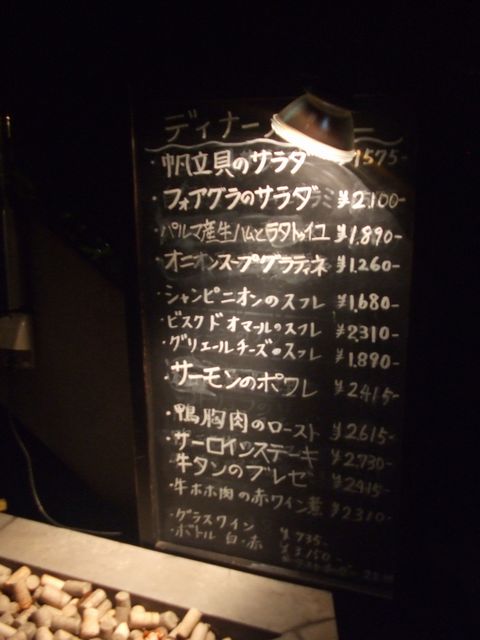 ディナー
・帆立貝のサラダ ¥1575-
・フォアグラのサラダ ¥2.100-
・パルマ産生ハムとラタトゥイユ ¥1.890-
・オニオンスープグラティネ ¥1.260-
・シャンピニオンのスフレ ¥1.680-
・ビスクドオマールのスフレ ¥2310-
・グリエールチーズのスフレ ¥1.890-
・サーモンのポワレ ¥2415-
・鴨胸肉のロースト ¥2.615-
・サーロインステーキ ¥2.730-
・牛タンのブレゼ ¥2415-
・牛ホホ肉の赤ワイン煮 ¥2310-
・グラスワイン ¥735-
・ボトル 白・赤 ¥3.150-